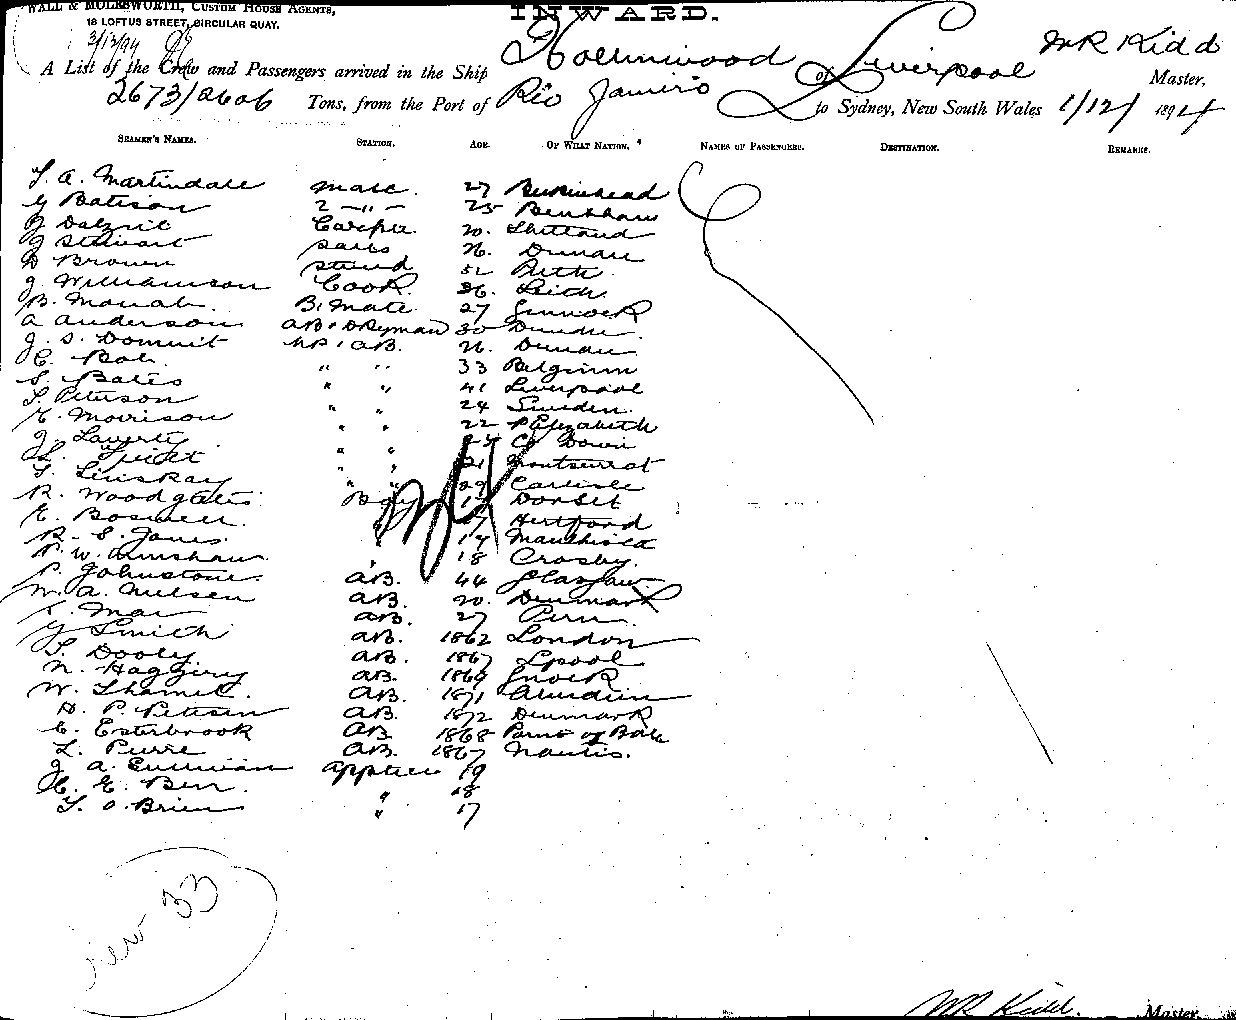 WALL & MOLESWORTH, CUSTOM HOUSE AGENTS,
18 LOFTUS STREET, CIRCULAR QUAY.
INWARD.
3/12/94
A List of the Crew and Passengers arrived in the Ship Hollinwood of Liverpool MR Kidd Master,
2673/2606 Tons, from the Port of Rio Janeiro to Sydney, New South Wales 1/12/ 1894
SEAMEN'S NAMES. STATION. AGE. OF WHAT NATION. NAMES OF PASSENGERS. DESTINATION. REMARKS.
T. A. Martindale Mate. 27 Birkenhead
G Batison 2 -"- 25
J Dalziel Carptr. 20. Shetland
J Stewart Sails 26. Dundee
D Brown Stewd 52 Leith
J. Williamson Cook. 36. Leith
B. B. Mate 27 Greenock
A Anderson AB & DKeyman 30 Dundee
J. S. AB. 26. Dundee
C. " " 33 Belgium
S. Bates " " 41 Liverpool
Peterson " " 24 Sweden.
E. Morrison " " 22 P Elizabeth
J. Laverty " " Co Down
" " 21 Montserrat
T. Linskay " " 29 Carlisle
R. Woodgates Boy 17 Dorset
E. Boswell. " 17 Hertford
R. S. Jones. " 17
P. W. " 18 Crosby.
P. Johnstone. AB. 44 Glasgow
A. Nielsen AB. 20. Denmark
AB. 27 Peru.
G Smith AB. 1862 London
T. Dooly AB. 1867 Lpool
N. Haggerty AB. 1869 Gnock
W. AB. 1871 Aberdeen
H. P. Petersen AB. 1872 Denmark
C. Esterbrook AB 1868
L. Pierre AB. 1867 Nantes.
J A. Sullivan Apptice 19
E. " 18
T. O. Brien " 17
Crew 33
MR Kidd. Master.